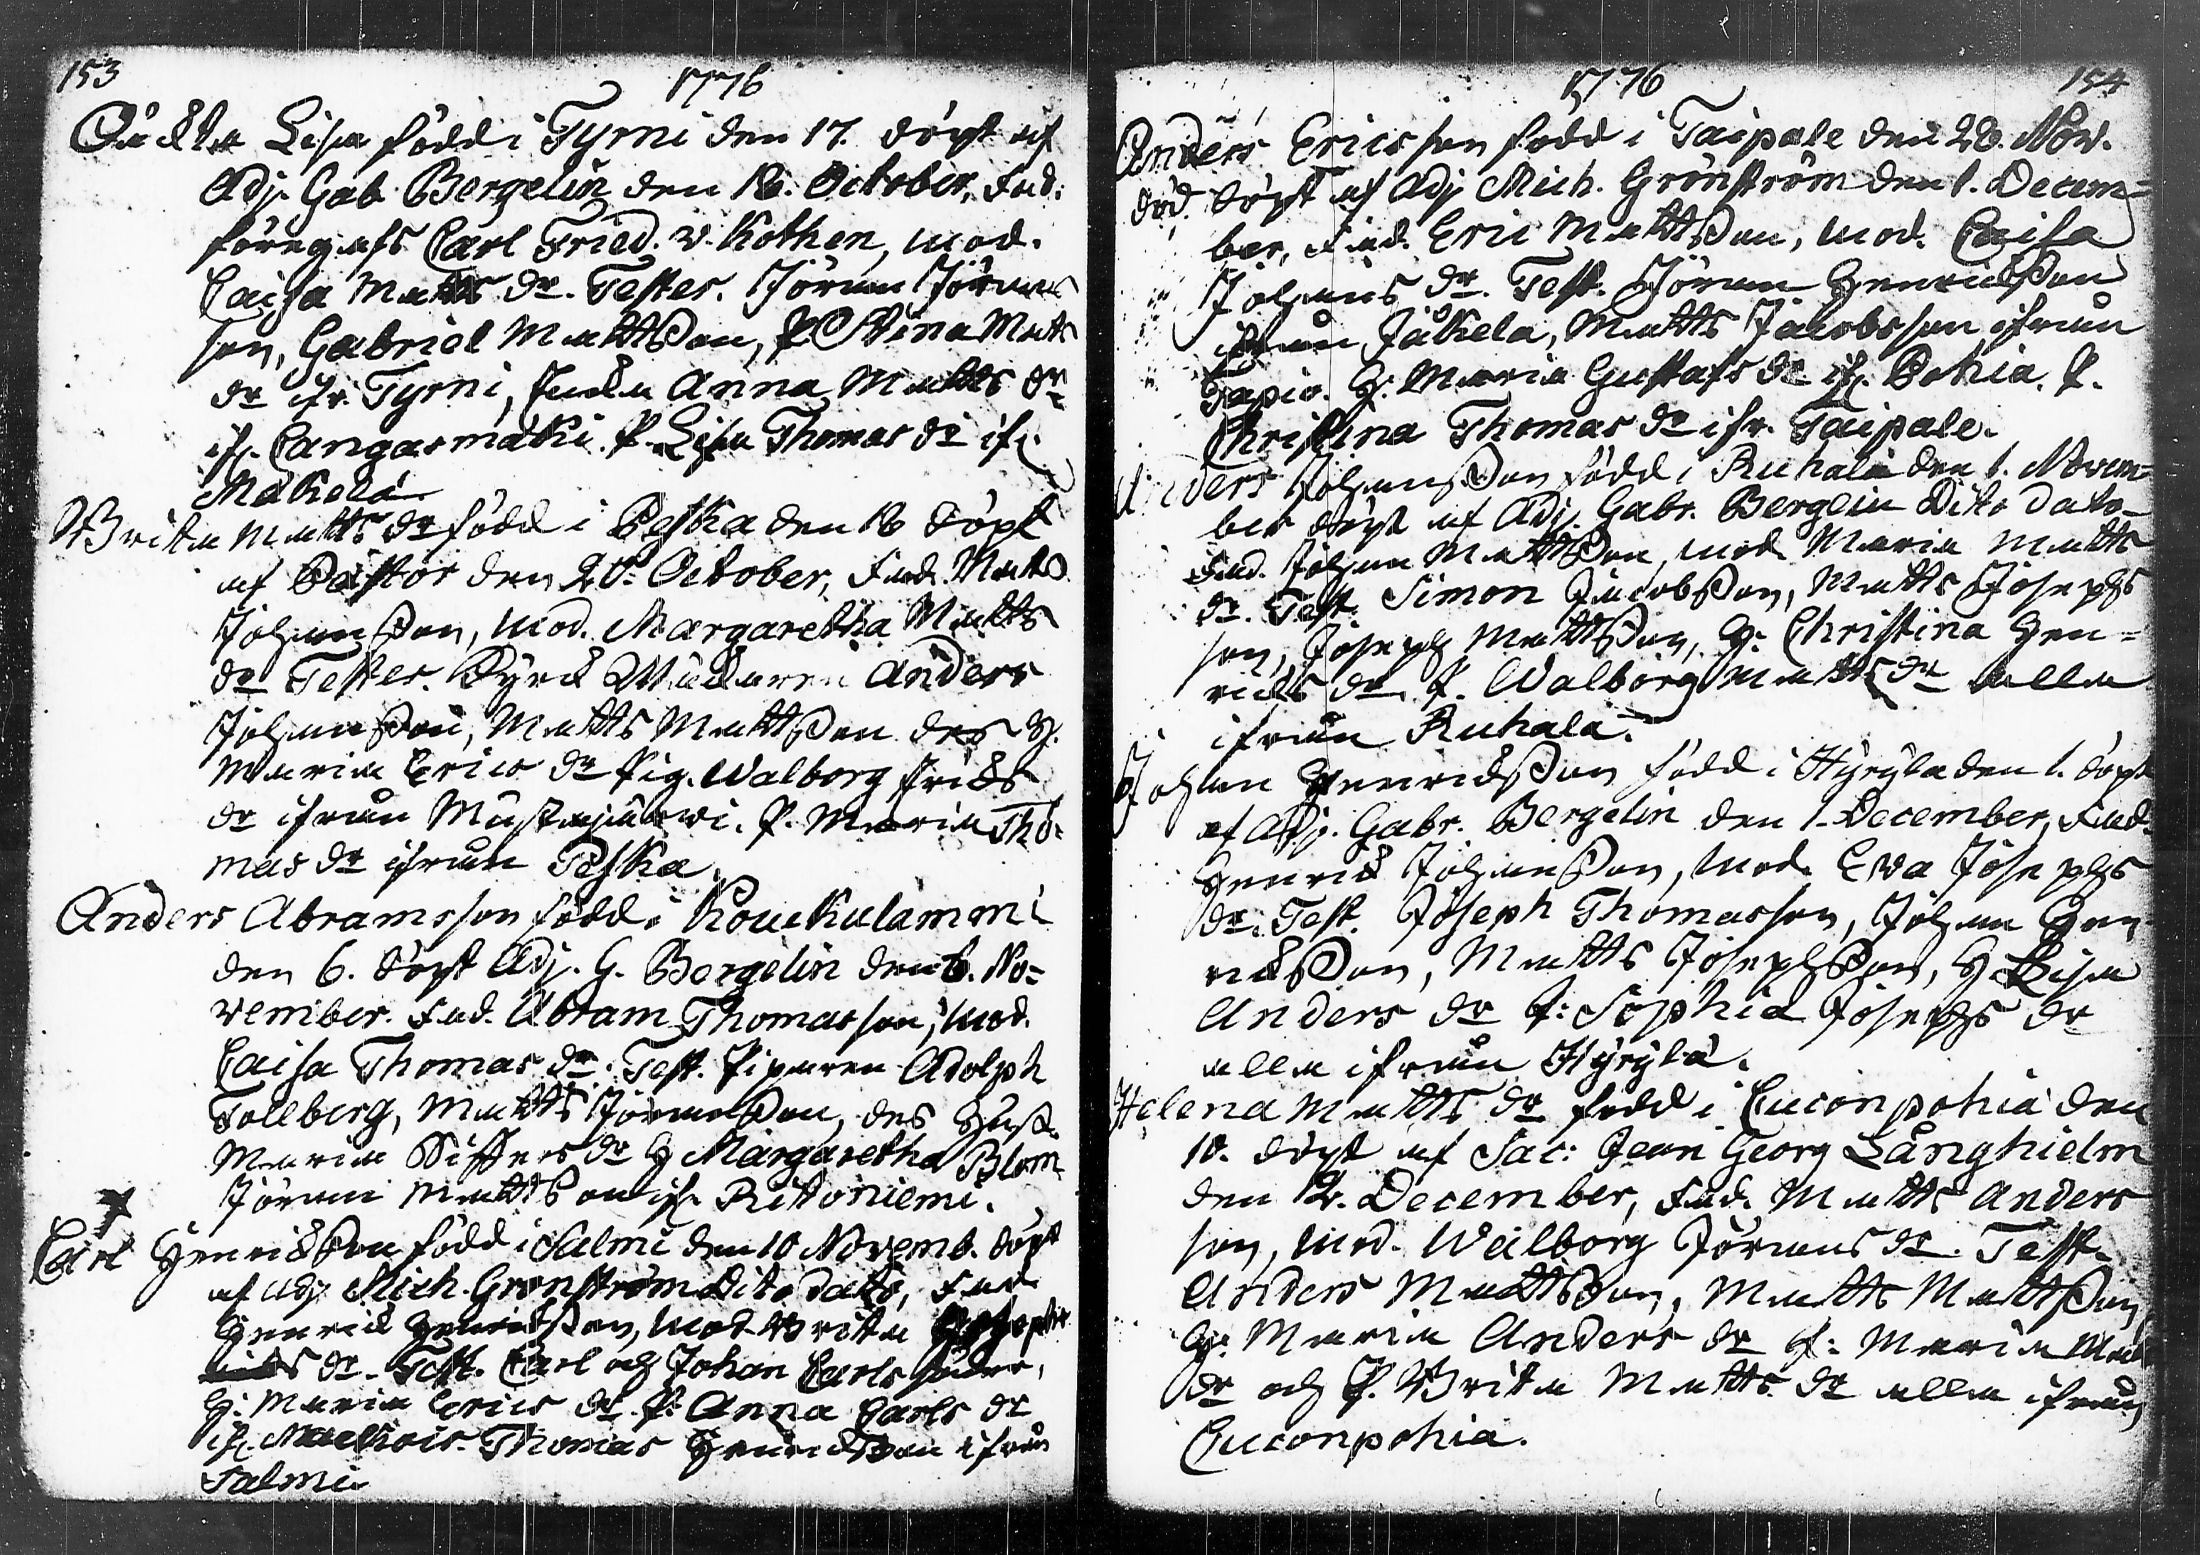 153
1776
Oäckta Lisa född i Tyrni den 17. döpt af
Adj. Gab. Bergelin den 18. October, Fad.
föregafs Carl Fried. v. Kothen, mod.
Caisa Matts dr. Testes. Jöran Jörans
son, Gabriel Mattsson, P. Stina Matts
dr ifr. Tyrni, Enka Anna Matts dr
if. Cangasmäki. P. Lisa Thomas dr if.
Mäkelä
Brita Matts dr född i Peska den 18 döpt
af Pastor den 20. October, Fad. Matts
Johansson, mod. Margaretha Matts
dr Testes. Kyrck Wäcktaren Anders
Johansson, Matts Mattsson des H.
Maria Erics dr Pig. Walborg Erics
dr ifrån Mustajärwi. P. Maria Tho-
mas dr ifrån Peska.
Anders Abramsson född i Koukulammi
den 6. döpt Adj. G. Bergelin den 8. No-
vember. Fad. Abram Thomasson, mod.
Caisa Thomas dr. Test. Piparen Adolph
Tollberg, Matts Jöransson, des Hust.
Maria Siffers dr H Margaretha Blom
Jöran Mattsson if. Ritoniemi.
Carl Henricsson född i Salmi den 10 Novemb. döpt
af Adj Mich. Grönström dito dato, Fad
Henrick Henricsson, mod Brita Josephs
dr. Test. Carl och Johan Carls söner,
H. Maria Erics dr. P. Anna Carls dr
if. Thomas Henricsson ifrån
Salmi
1776
154
Anders Ericsson född i Taipale den 28. Nov.
död. döpt af Adj Mich. Grönström den 1. Decem-
ber, Fad. Eric Mattsson, mod. Caisa
Johans dr. Test. Jöran Henricsson
ifrån Jäkelä, Matts Jacobsson ifrån
Tapio. H. Maria Gustafs dr if. Pohia. P.
Christina Thomas dr ifr. Taipale.
Anders Johansson född i Ruhala den 1. Novem-
ber döpt af Adj. Gabr. Bergelin dito dato
Fad. Johan Mattsson, mod. Maria Matts
dr. Test. Simon Jacobsson, Matts Josephs
son, Joseph Mattsson, H. Christina Hen-
rics dr. P. Walborg Matts dr alla
ifrån Ruhala.
Johan Henricsson född i Hyrylä den 1. döpt
af Adj. Gabr. Bergelin den 1 December, Fad.
Henrick Johansson, mod. Eva Josephs
dr. Test. Joseph Thomasson, Johan Hen-
ricksson, Matts Josephsson, H Lisa
Anders dr P: Sophia Josephs dr
alla ifrån Hyrylä.
Helena Matts dr född i Cuconpohia den
10. döpt af Sac: Jean Georg Långhielm
den 12. December, Fad. Matts Anders
son, mod. Walborg Jörans dr. Test.
Anders Mattsson, Matts Mattsson,
H. Maria Anders dr P: Maria Matts
dr och P. Brita Matts dr alla ifrån
Cuconpohia.